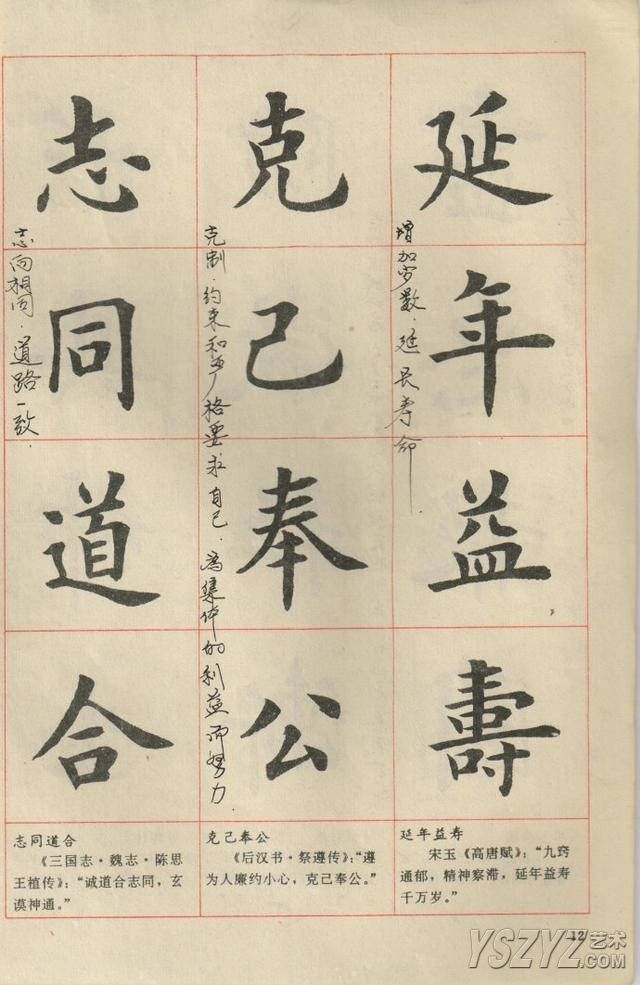 延年益壽
增加岁数.延长寿命
克己奉公
克制.约束和严格要求自己.为集体的利益而努力.
志同道合
志向相同.道路一致.
延年益寿
宋玉《高唐赋》：“九窍
通郁，精神察滞，延年益寿
千万岁。”
克己奉公
《后汉书·祭遵传》：“遵
为人廉约小心，克己奉公。”
志同道合
《三国志·魏志·陈思
王植传》：“诚道合志同，玄
谟神通。”
12
YSZYZ艺术
.COM